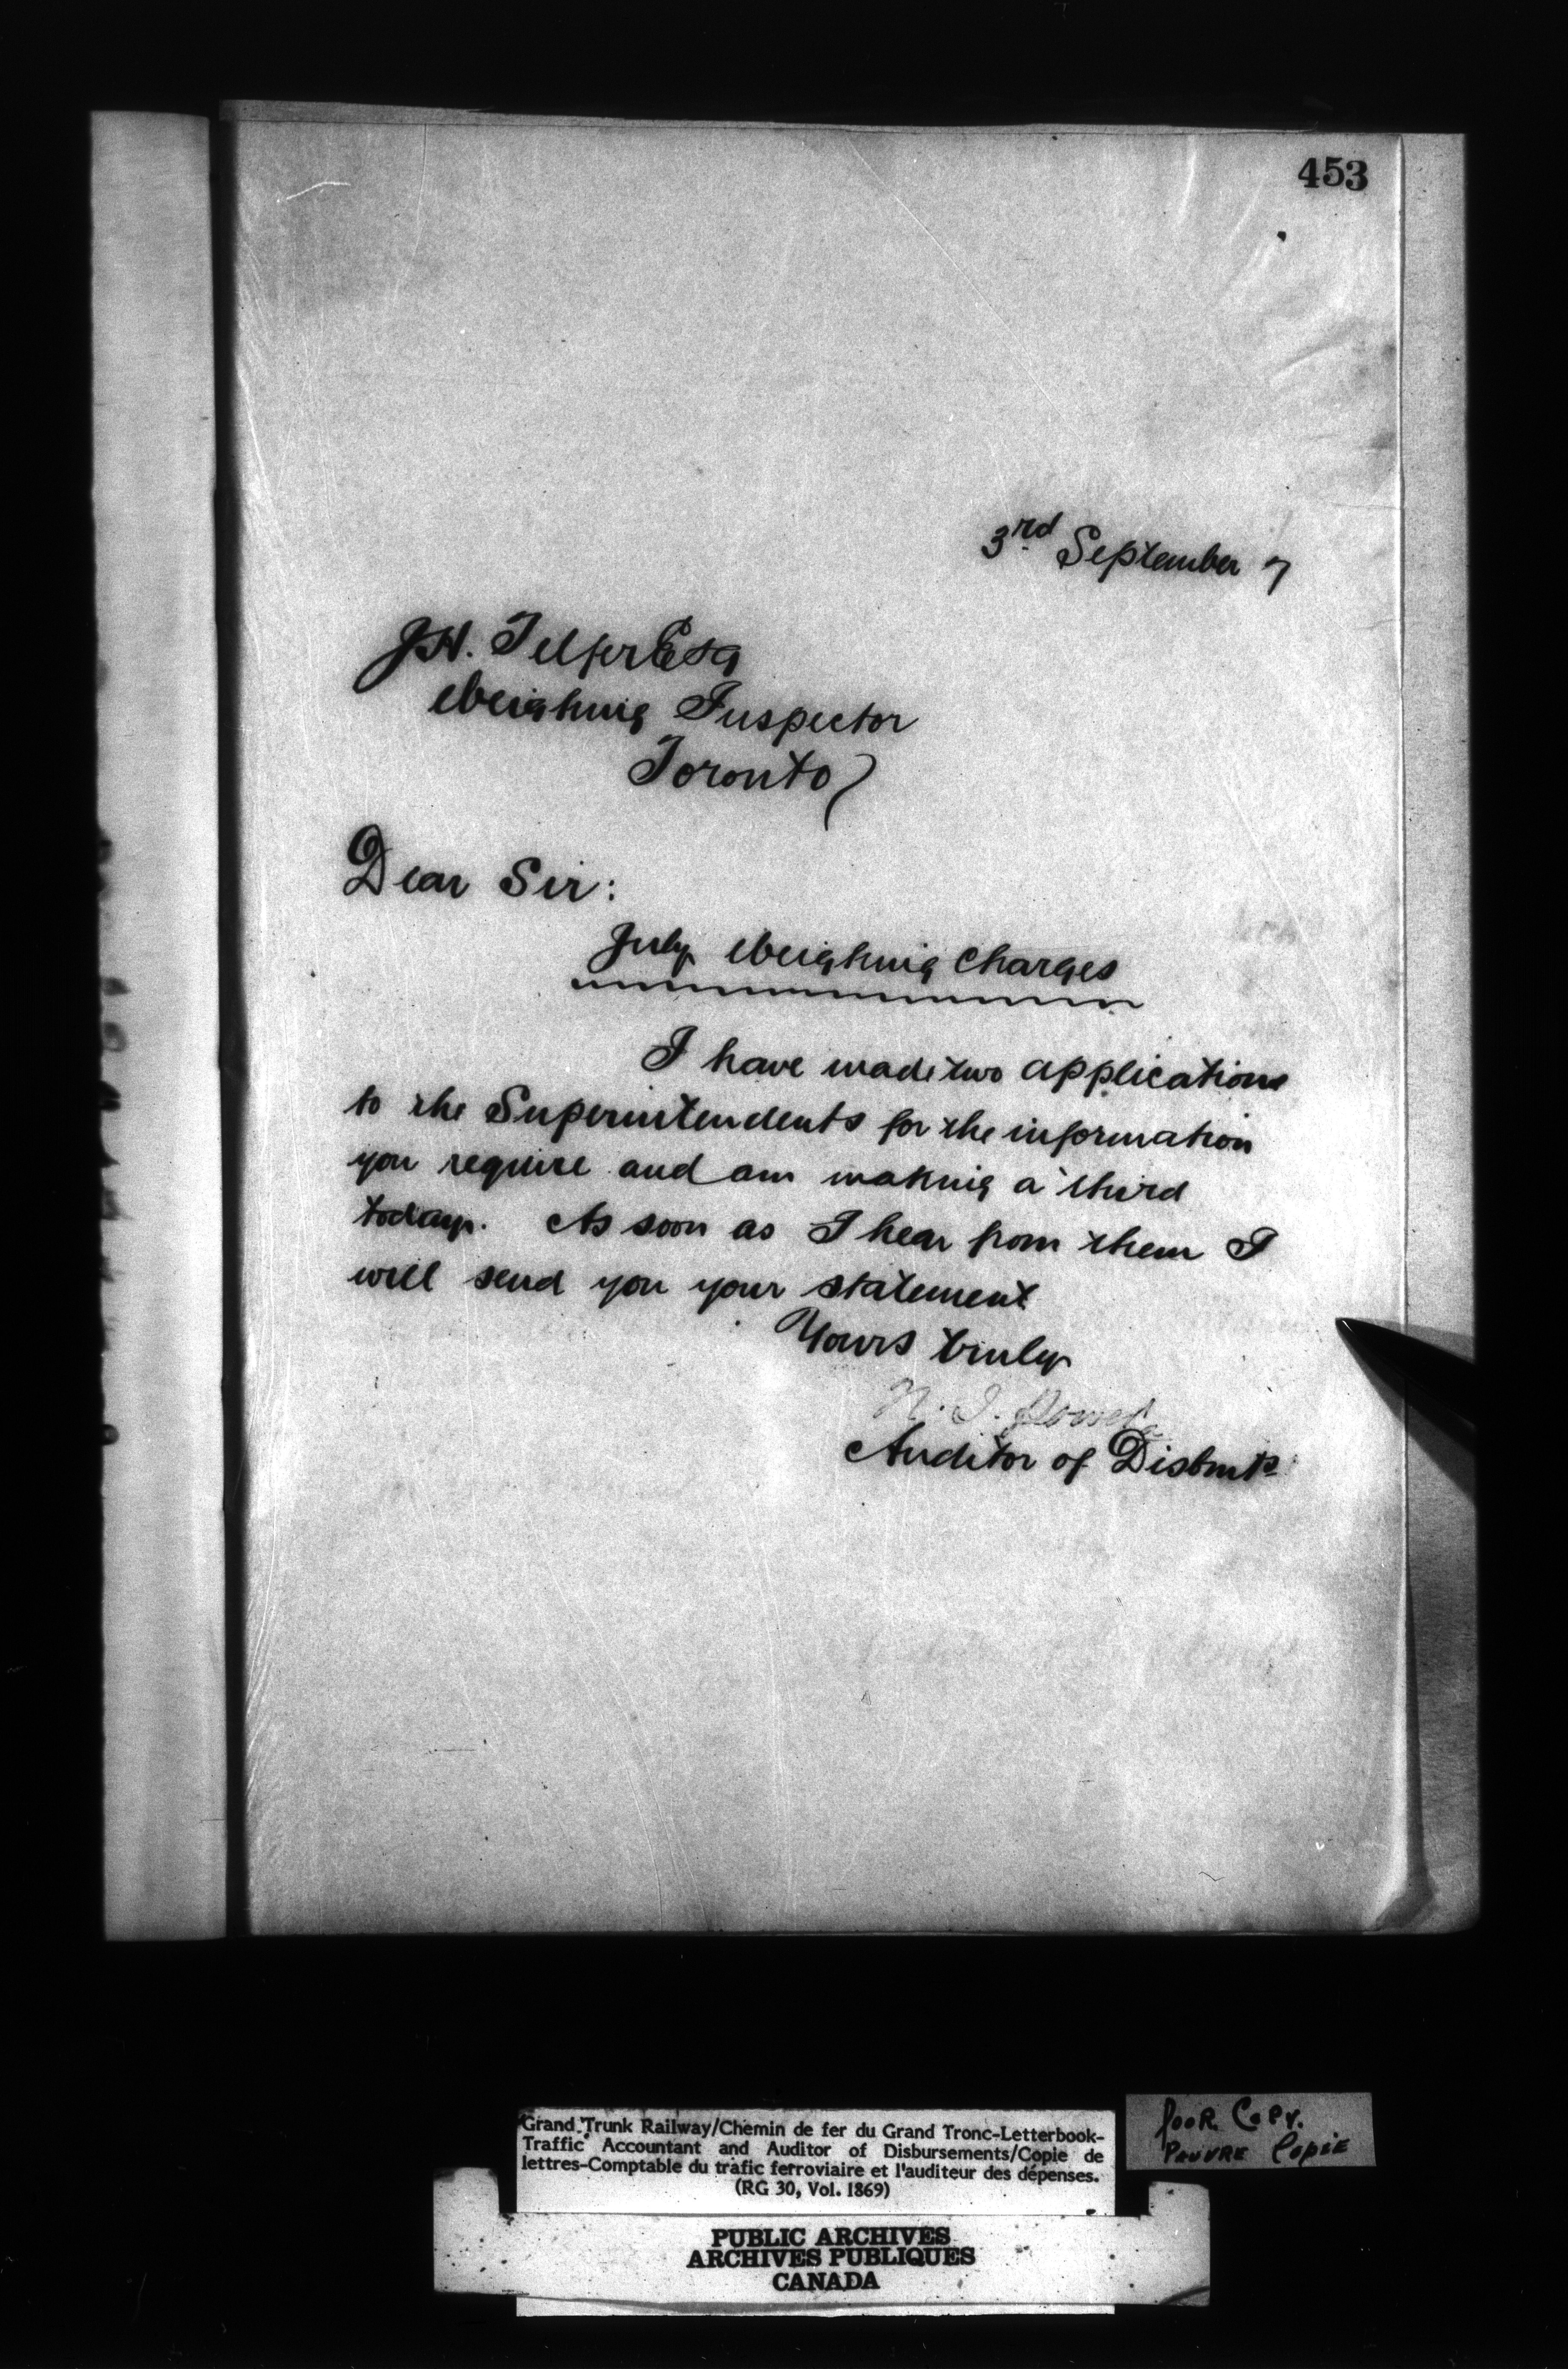 453
3rd September 7
J.H. Telfer Esq
Weighing Inspector
Toronto
Dear Sir:
July Weighing Charges
I have made two applications
to the Superintendents for the information
you require and am making a third
today. As soon as I hear from them I
will send you your statement
Yours truly
Auditor of Disbmts
Grand Trunk Railway/Chemin de fer du Grand Tronc-Letterbook-
Traffic Accountant and Auditor of Disbursements/Copie de
lettres-Comptable du trafic ferroviaire et l'auditeur des dépenses.
(RG 30, Vol. 1869)
Poor Copy.
Pauvre Copie
PUBLIC ARCHIVES
ARCHIVES PUBLIQUES
CANADA